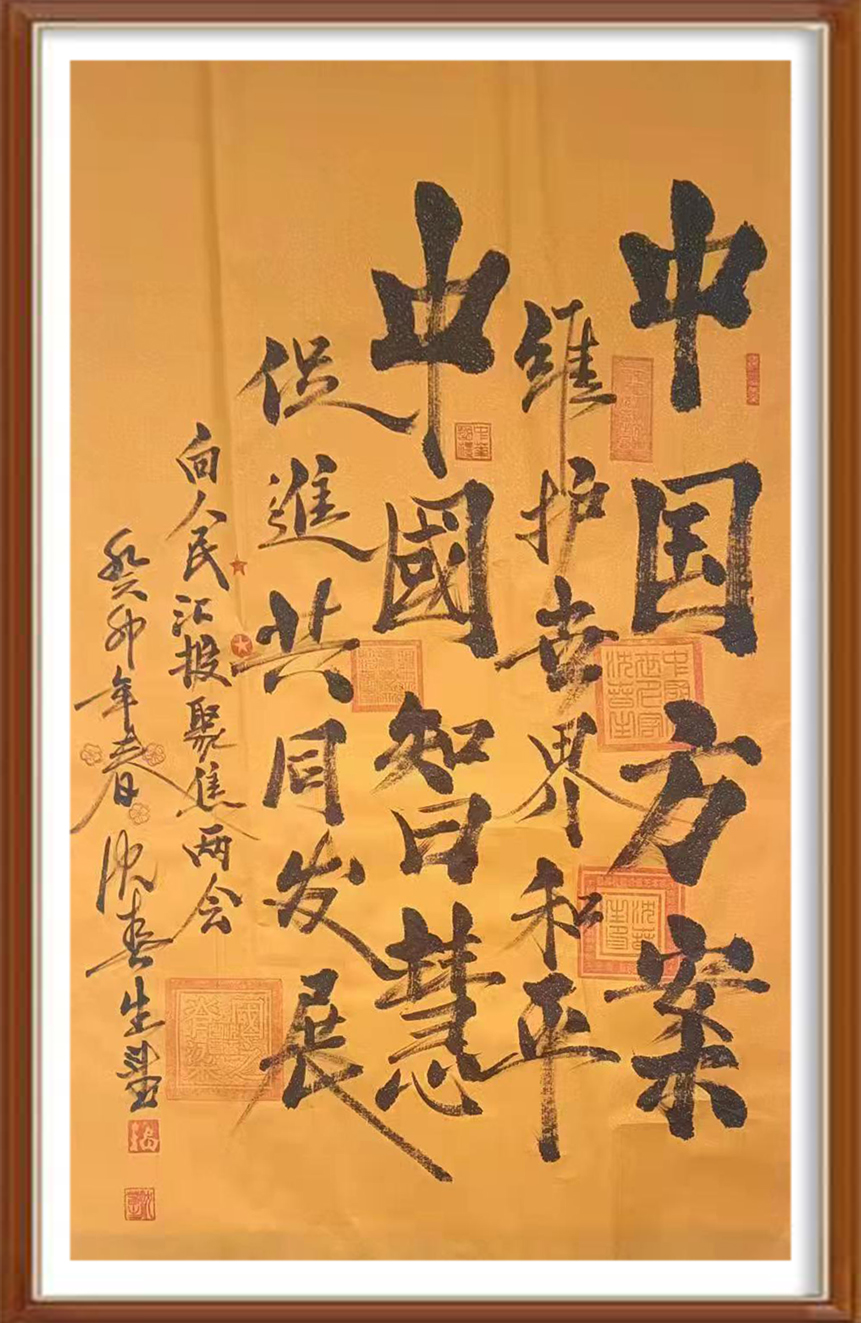 中国方案
维护世界和平
中國智慧
促進共同发展
向人民汇报聚焦两会
癸卯年春沈春生書